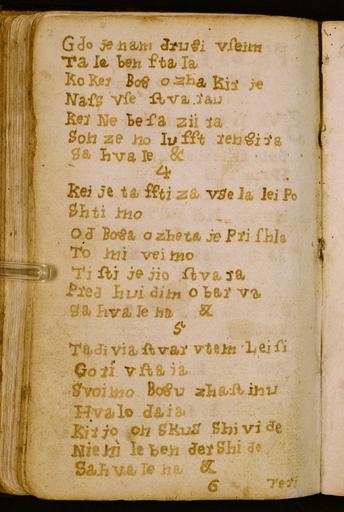 Gdo je nam drugi vſeim
Ta le ben ſta la
Ko ker Bog ozha Kir je
Naſs vſe ſtvarau
Ker Ne beſa zii ra
Sonze no luſſt rengira
Sa hvale &
4
Kei je ta ſſti za vſe la lei Po
Shti mo
Od Boga ozheta je Pri ſhla
To mi vei mo
Ti ſti je jio ſtvara
Pred hui dim obar va
Sa hvale na &
5
Ta divia ſtvar vtem Lei ſi
Gori vſta ja
Svoimo Bogu zhaſt inu
Hvalo daia
Kir jo on Skus Shivi de
Nie ni le ben der Shi de
Sa hvale na &
6